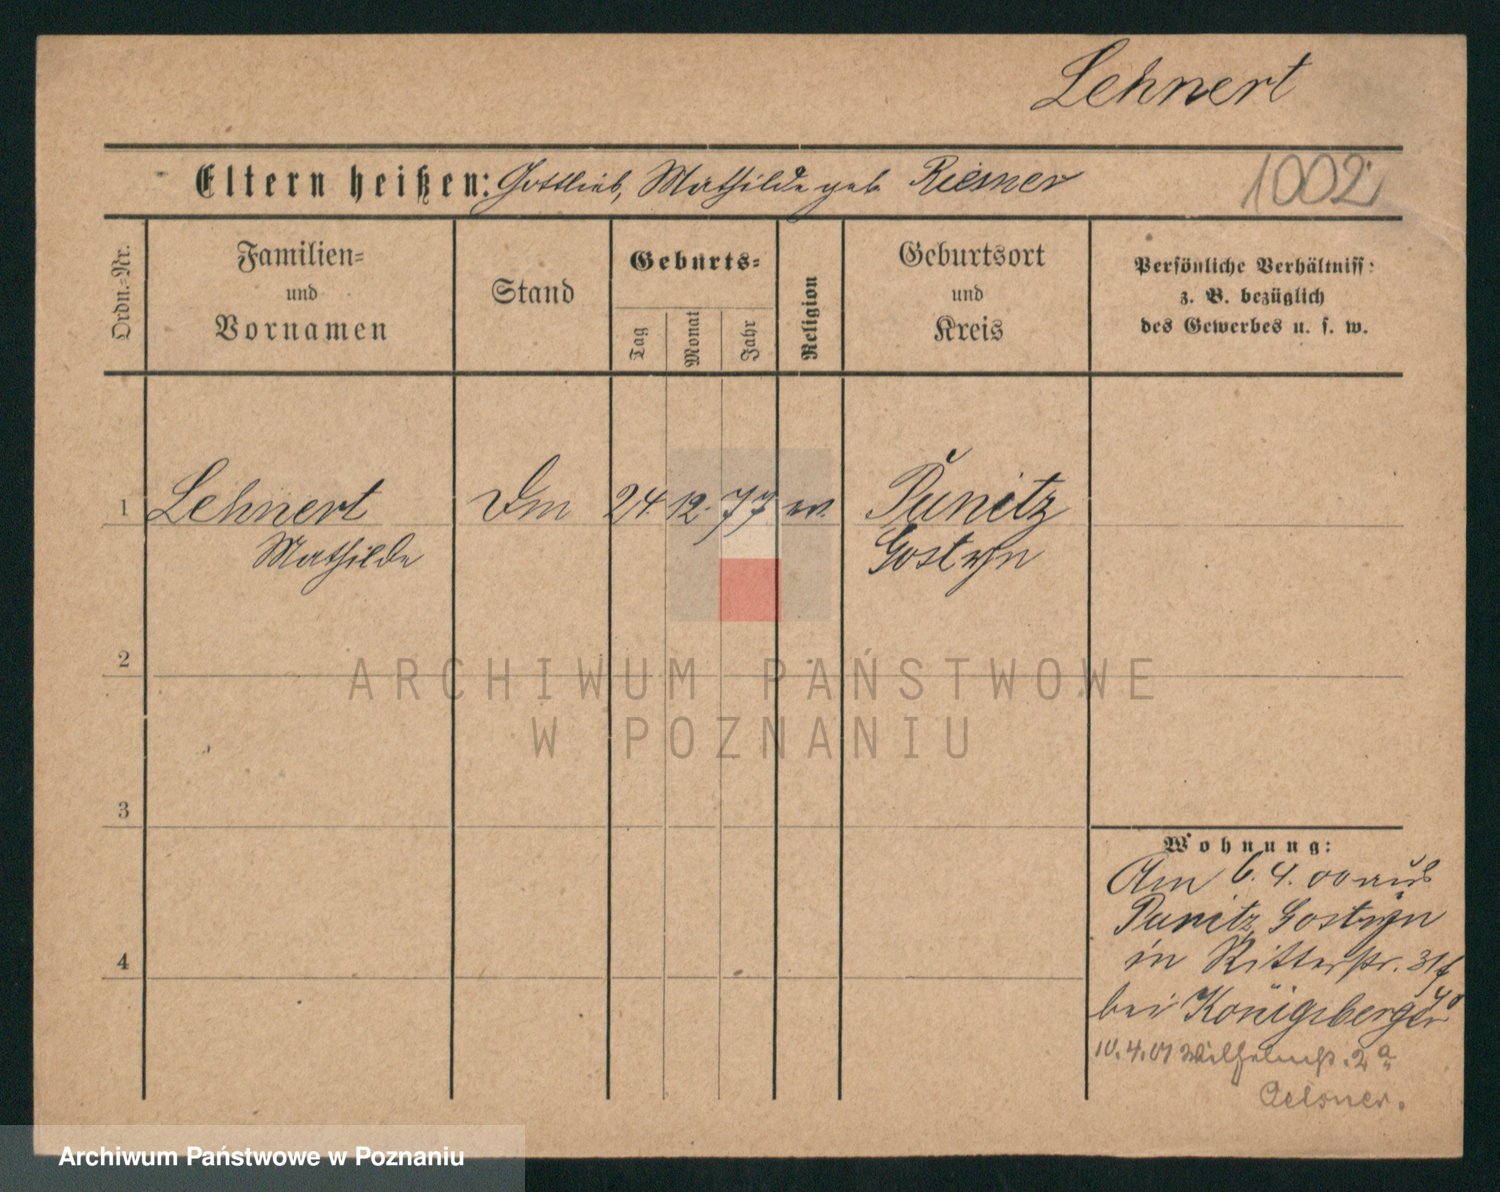 Lehnert
Eltern heißen: Gottlieb, Mathilde geb. Riesner
1002
Ordn.-Nr.
Familien-
und
Vornamen
Stand
Geburts-
Tag
Monat
Jahr
Religion
Geburtsort
und
Kreis
Persönliche Verhältniss:
z. B. bezüglich
des Gewerbes u. s. w.
1 Lehnert 24. 12. 77 ev. Punitz
Mathilde Gostyn
2
ARCHIWUM PAŃSTWOWE
W POZNANIU
3
4
Wohnung:
Am 6. 4. 00 aus
Punitz Gostyn
in Ritterstr. 31
bei Königsberger
10. 4. 01 Wilhelmstr. 2a
Oelsner.
Archiwum Państwowe w Poznaniu